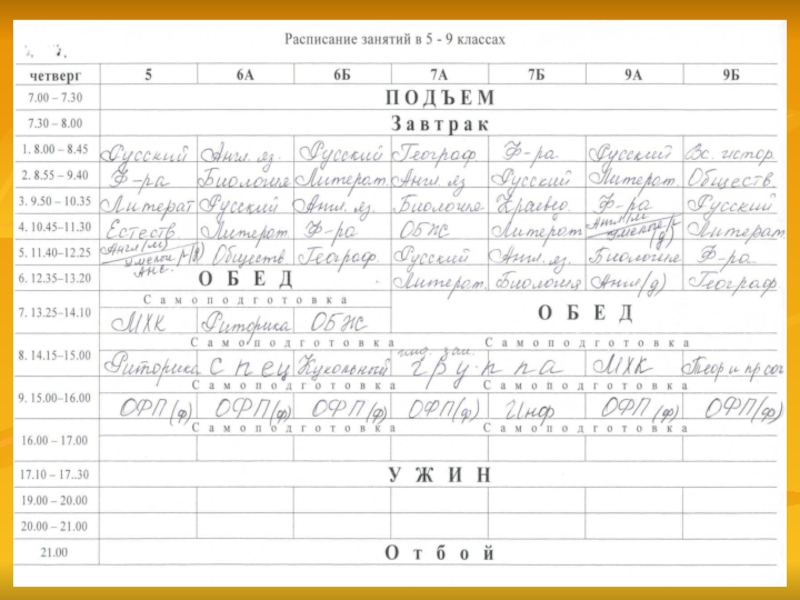 Расписание занятий в 5 - 9 классах
четверг 5 6А 6Б 7А 7Б 9А 9Б
7.00 – 7.30 ПОДЪЕМ
7.30 – 8.00 Завтрак
1. 8.00 – 8.45 Русский Англ. яз. Русский Географ. Ф-ра Русский Вс. истор.
2. 8.55 – 9.40 Ф-ра Биология Литерат. Англ. яз Русский Литерат. Обществ.
3. 9.50 – 10.35 Литерат Русский Англ. яз. Биология Краевед. Ф-ра Русский
4. 10.45–11.30 Естеств Литерат. Ф-ра ОБЖ Литерат Англ(м) Литерат
5. 11.40–12.25 Англ(м) Обществ Географ. Русский Англ. яз. Биология Ф-ра.
6. 12.35–13.20 ОБЕД Литерат. Биология Англ(д) Географ
Самоподготовка
7. 13.25–14.10 МХК Риторика ОБЖ ОБЕД
Самоподготовка Самоподготовка
8. 14.15–15.00 Риторика спец Кукольный группа МХК
Самоподготовка Самоподготовка
9. 15.00–16.00 ОФП(ф) ОФП(ф) ОФП(ф) ОФП(ф) Инф ОФП(ф) ОФП(ф)
Самоподготовка Самоподготовка
16.00 – 17.00
17.10 – 17..30 УЖИН
19.00 – 20.00
20.00 – 21.00
21.00 Отбой